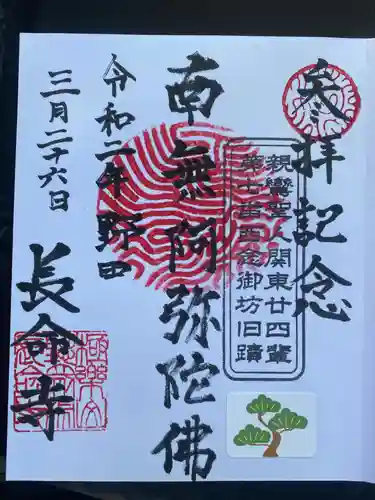 参拝記念
親鸞聖人関東廿四輩
第七番西念御坊旧蹟
南無阿弥陀佛
令和二年
三月二十六日
野田
長命寺